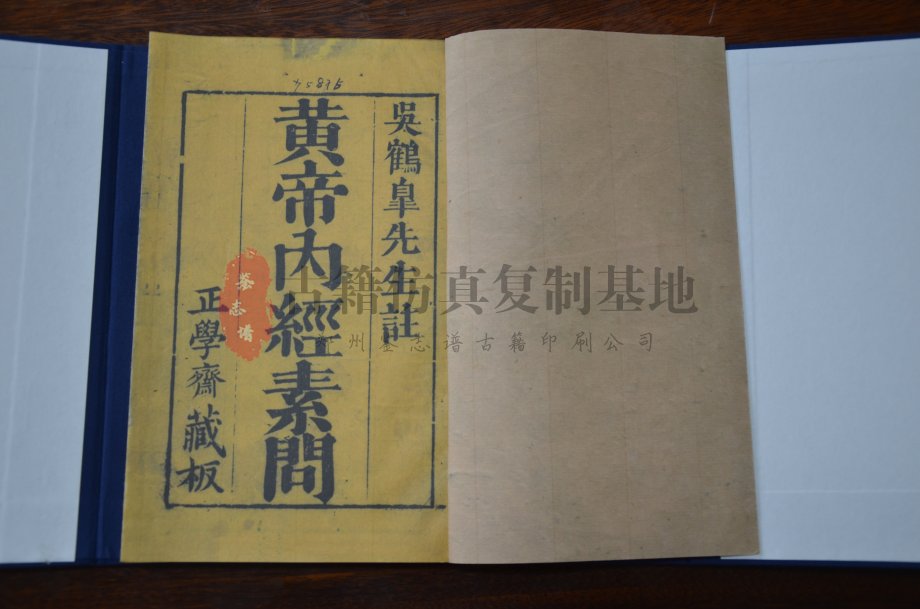 吳鶴臯先生註
黃帝內經素問
正學齋藏板
鉴志谱
古籍仿真复制基地
州鉴志谱古籍印刷公司